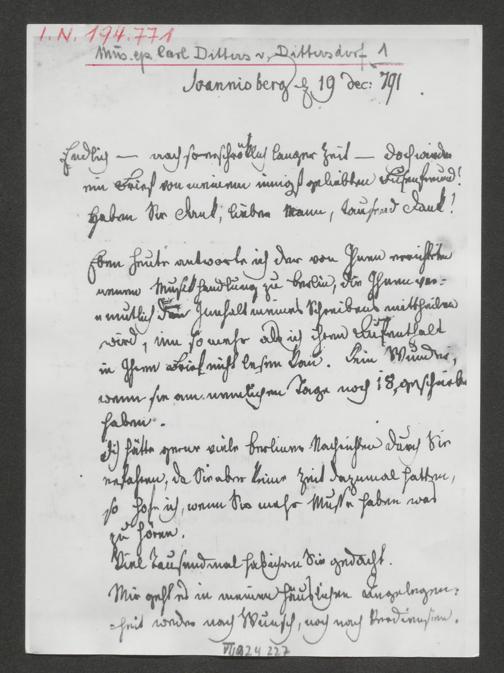 I.N. 194.771
Mus. ep. Carl Ditters v. Dittersdorf 1
Joannisberg 19 Dec: 791
Endlich — nach so erschröklich langer Zeit — doch wieder
ein Brief von meinem innigst geliebten Busenfreund!
Haben Sie Dank, lieber Mann, tausend Dank!
Eben heute antworte ich der von Ihnen errichteten
neuen Musikhandlung zu Berlin, die Ihnen ver-
muthlich den Innhalt meines Schreibens mittheilen
wird, um so mehr als ich ihren Aufenthalt
in Ihrem Brief nicht lesen kan. Kein Wunder,
wenn sie am nemlichen Tage noch 18, geschrieben
haben.
Ich hätte gerne viele berliner Nachrichten durch Sie
erfahren, da Sie aber keine Zeit dazumal hatten,
so hoffe ich, wenn Sie mehr Musse haben was
zu hören.
Viel tausendmal hab ich an Sie gedacht.
Mir geht es in meinen häuslichen Angelegen-
heit weder nach Wunsch, noch nach Verdiensten.